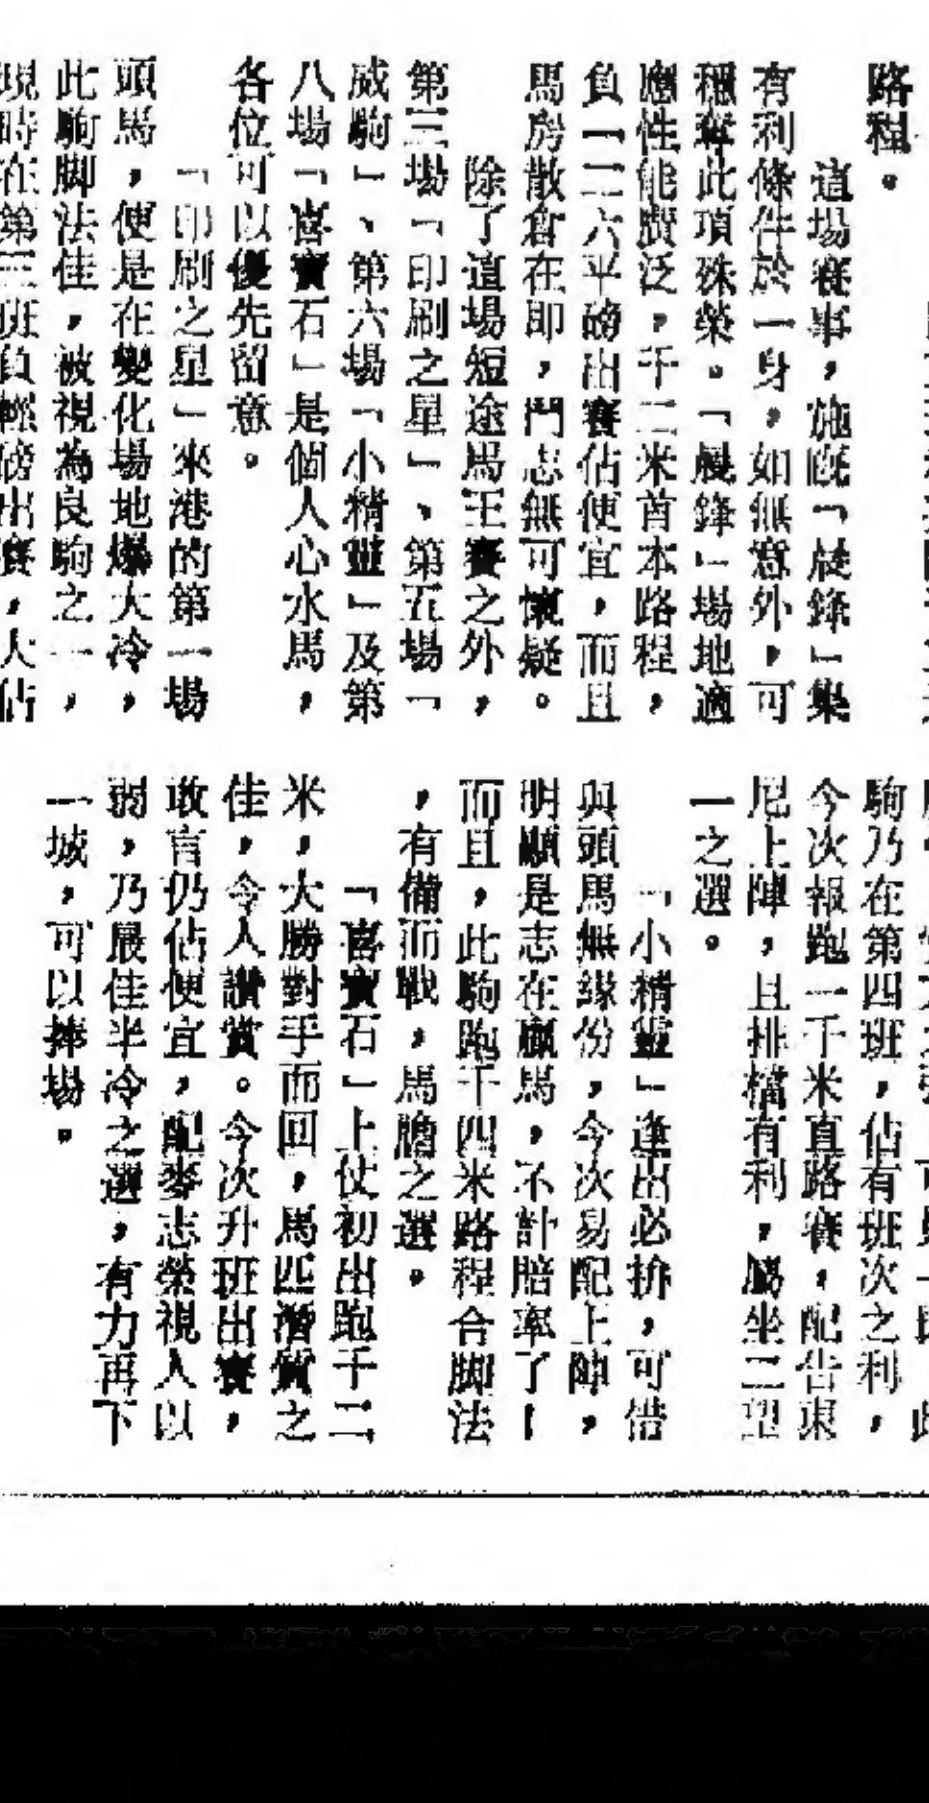 路程。
這場賽事，施嘅「晨鋒」集
有利條件於一身，如無意外，可
穩奪此項殊榮。「晨鋒」場地適
應性能廣泛，千二米首本路程，
負一二六平磅出賽佔便宜，而且
馬房散倉在即，鬥志無可懷疑。
除了這場短途馬王賽之外，
第三場「印刷之星」、第五場「
威駒」、第六場「小精靈」及第
八場「喜寶石」是個人心水馬，
各位可以優先留意。
「印刷之星」來港的第一場
頭馬，便是在變化場地爆大冷，
此駒脚法佳，被視為良駒之一，
現時在第三班負輕磅出賽，大佔
駒乃在第四班，佔有班次之利，
今次報跑一千米直路賽，配告東
尼上陣，且排檔有利，屬坐二望
一之選。
「小精靈」逢出必拚，可惜
與頭馬無緣份，今次易配上陣，
明顯是志在贏馬，不計賠率了！
而且，此駒跑千四米路程合脚法
，有備而戰，馬膽之選。
「喜寶石」上仗初出跑千二
米，大勝對手而回，馬匹潛質之
佳，令人讚賞。今次升班出賽，
敢言仍佔便宜，配麥志榮視人以
弱，乃最佳半冷之選，有力再下
一城，可以捧場。